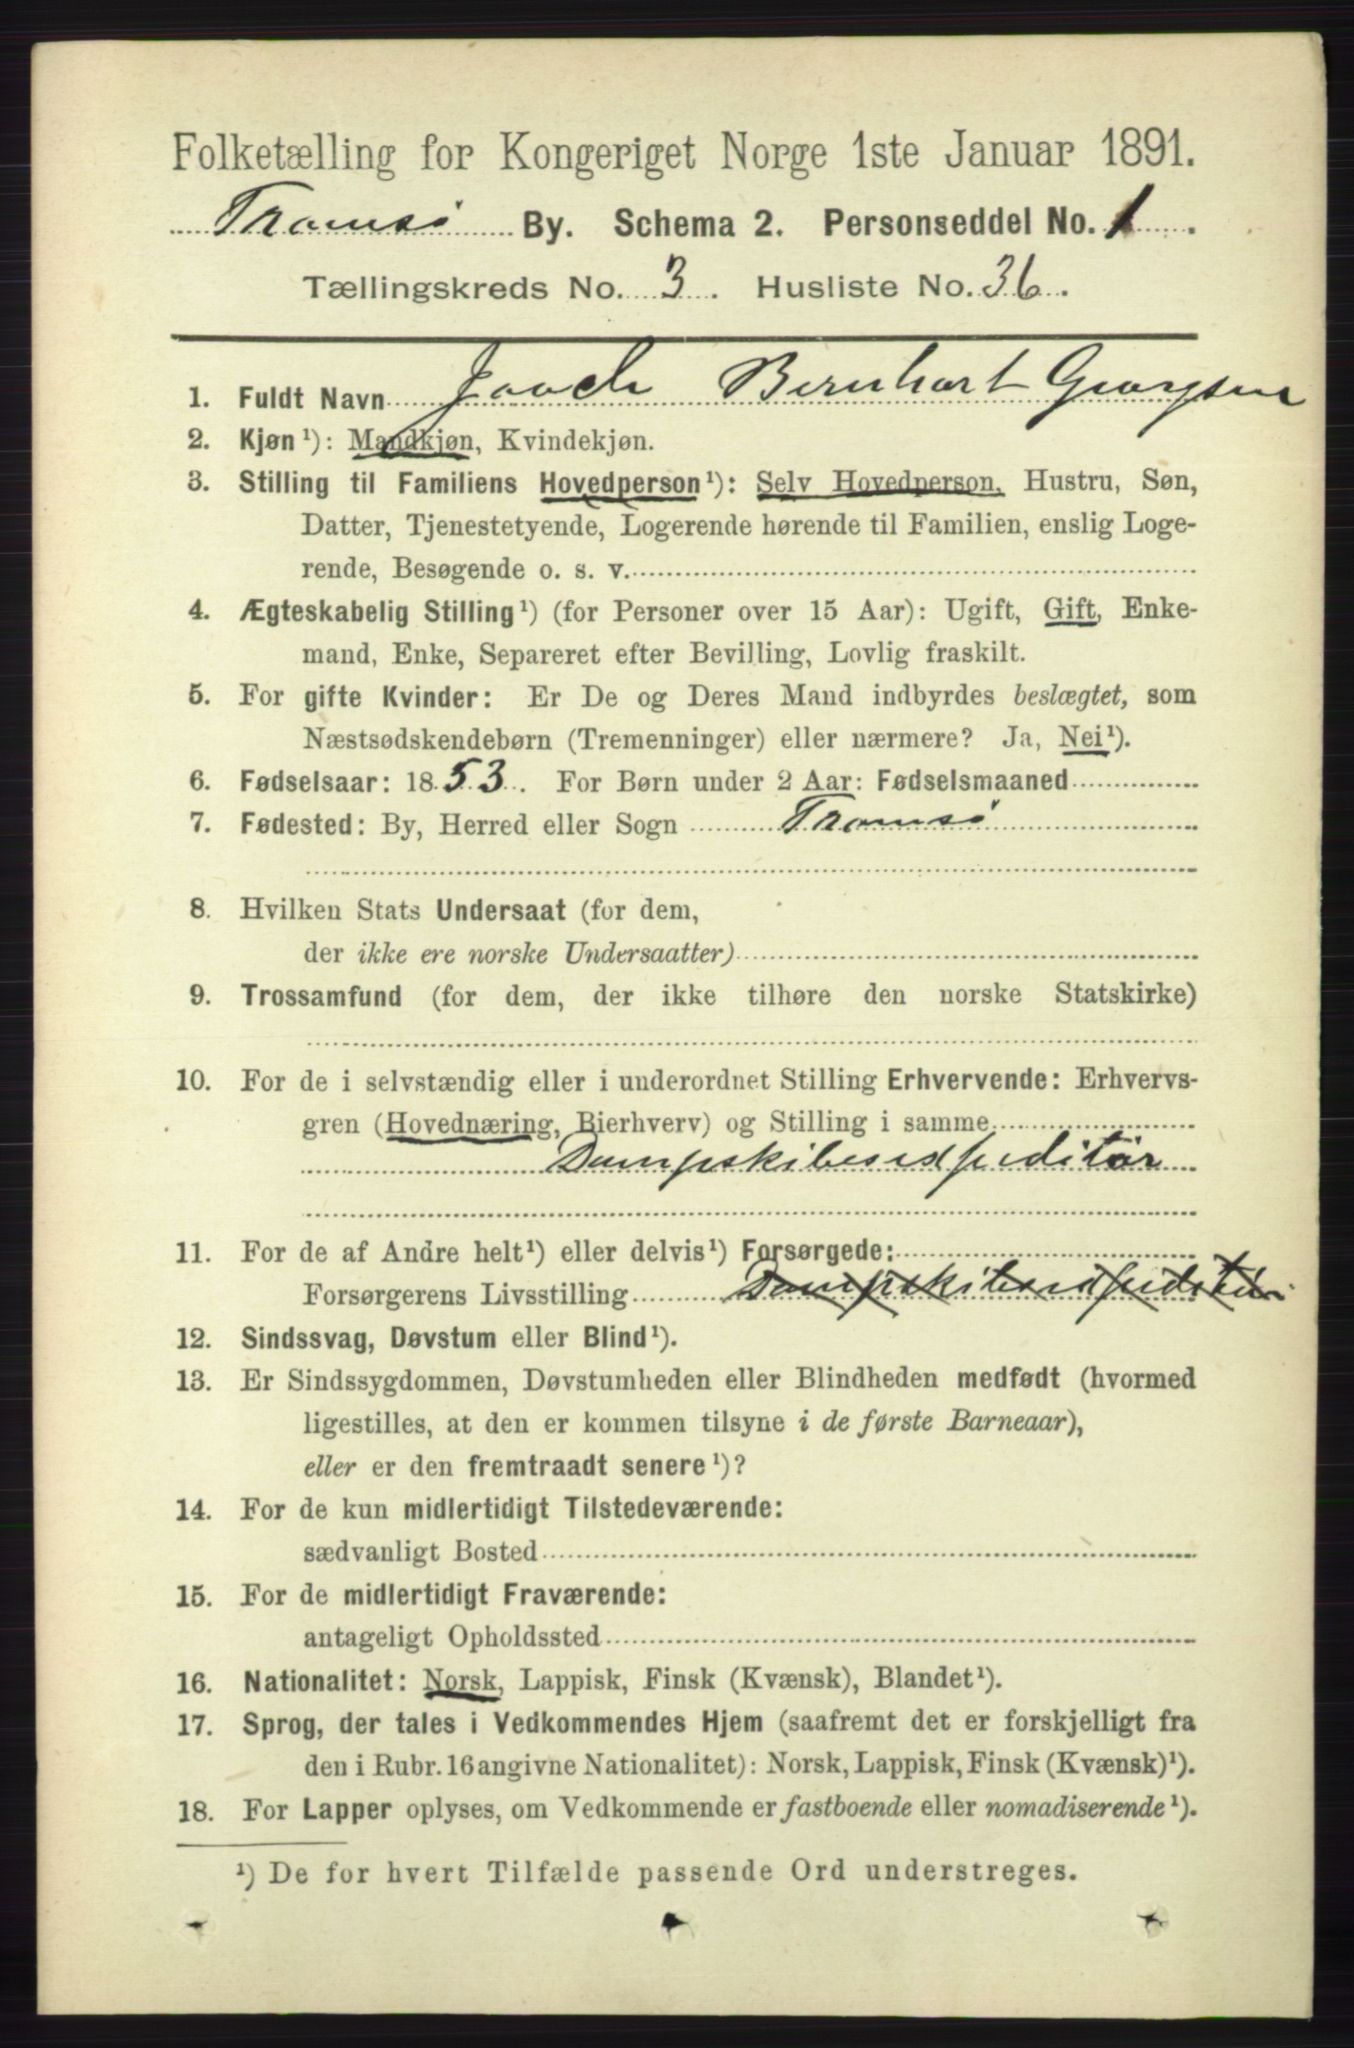 Folketælling for Kongeriget Norge 1ste Januar 1891.
Tromsø By. Schema 2. Personseddel No. 1.
Tællingskreds No. 3. Husliste No. 36.
1. Fuldt Navn Bernhart Georgsen
2. Kjøn¹): Mandkjøn, Kvindekjøn.
3. Stilling til Familiens Hovedperson¹): Selv Hovedperson, Hustru, Søn,
Datter, Tjenestetyende, Logerende hørende til Familien, enslig Loge-
rende, Besøgende o. s. v.
4. Ægteskabelig Stilling¹) (for Personer over 15 Aar): Ugift, Gift, Enke-
mand, Enke, Separeret efter Bevilling, Lovlig fraskilt.
5. For gifte Kvinder: Er De og Deres Mand indbyrdes beslægtet, som
Næstsødskendebørn (Tremenninger) eller nærmere? Ja, Nei¹).
6. Fødselsaar: 1853. For Børn under 2 Aar: Fødselsmaaned
7. Fødested: By, Herred eller Sogn Tromsø
8. Hvilken Stats Undersaat (for dem,
der ikke ere norske Undersaatter)
9. Trossamfund (for dem, der ikke tilhøre den norske Statskirke)
10. For de i selvstændig eller i underordnet Stilling Erhvervende: Erhvervs-
gren (Hovednæring, Bierhverv) og Stilling i samme
Dampskibsexspeditør
11. For de af Andre helt¹) eller delvis¹) Forsørgede:
Forsørgerens Livsstilling Dampskibsexspeditør
12. Sindssvag, Døvstum eller Blind¹).
13. Er Sindssygdommen, Døvstumheden eller Blindheden medfødt (hvormed
ligestilles, at den er kommen tilsyne i de første Barneaar),
eller er den fremtraadt senere¹)?
14. For de kun midlertidigt Tilstedeværende:
sædvanligt Bosted
15. For de midlertidigt Fraværende:
antageligt Opholdssted
16. Nationalitet: Norsk, Lappisk, Finsk (Kvænsk), Blandet¹).
17. Sprog, der tales i Vedkommendes Hjem (saafremt det er forskjelligt fra
den i Rubr. 16 angivne Nationalitet): Norsk, Lappisk, Finsk (Kvænsk)¹).
18. For Lapper oplyses, om Vedkommende er fastboende eller nomadiserende¹).
¹) De for hvert Tilfælde passende Ord understreges.